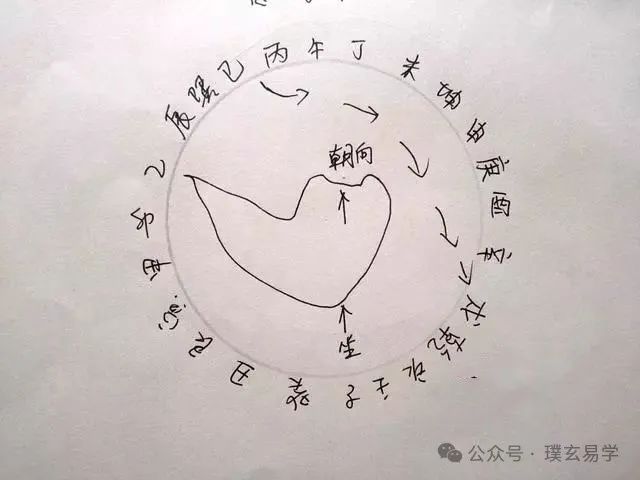 巳 丙 午 丁 未 坤 申 庚 酉 辛 戌 乾 亥 壬 子 癸 丑 艮 寅 甲 卯 乙 辰 巽
朝向
坐
公众号 · 璞玄易学